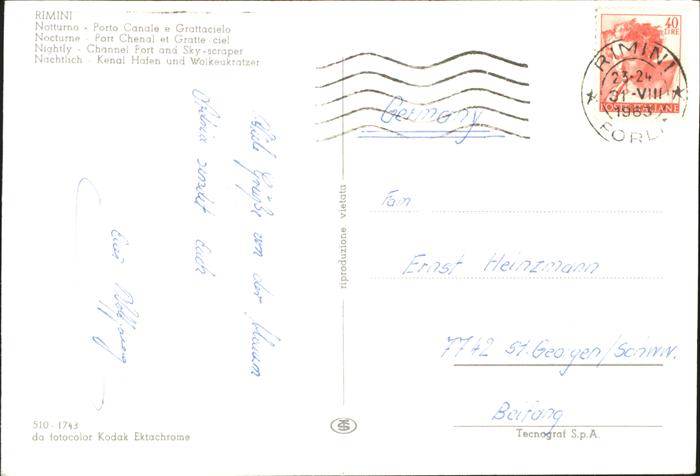 RIMINI
Notturno - Porto Canale e Grattacielo
Nocturne - Port Chenal et Gratte-ciel
Nightly - Channel Port and Sky-scraper
Nachtlich - Kenal Hafen und Woikeukratzer
Viele Grüße von der blauen
Adria sendet Euch
Euer Wolfgang
510 - 1743
da fotocolor Kodak Ektachrome
riproduzione vietata
40
LIRE
POSTE ITALIANE
RIMINI
23-24
31-VIII
1963
FORLI
Germany
Fam
Ernst Heinzmann
7742 St. Georgen/Schww.
Tecnograf S.p.A.